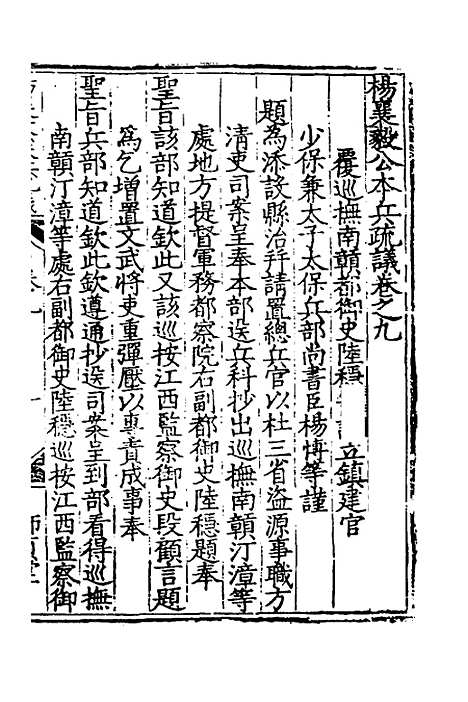 楊襄毅公本兵疏議卷之九
覆巡撫南贛都御史陸穩 立鎮建官
少保兼太子太保兵部尚書臣楊博等謹
題為添設縣治并請置總兵官以杜三省盜源事職方
清吏司案呈奉本部送兵科抄出巡撫南贛汀漳等
處地方提督軍務都察院右副都御史陸穩題奉
聖旨該部知道欽此又該巡按江西監察御史段顧言題
為乞增置文武將吏重彈壓以專責成事奉
聖旨兵部知道欽此欽遵通抄送司案呈到部看得巡撫
南贛汀漳等處右副都御史陸穩巡按江西監察御